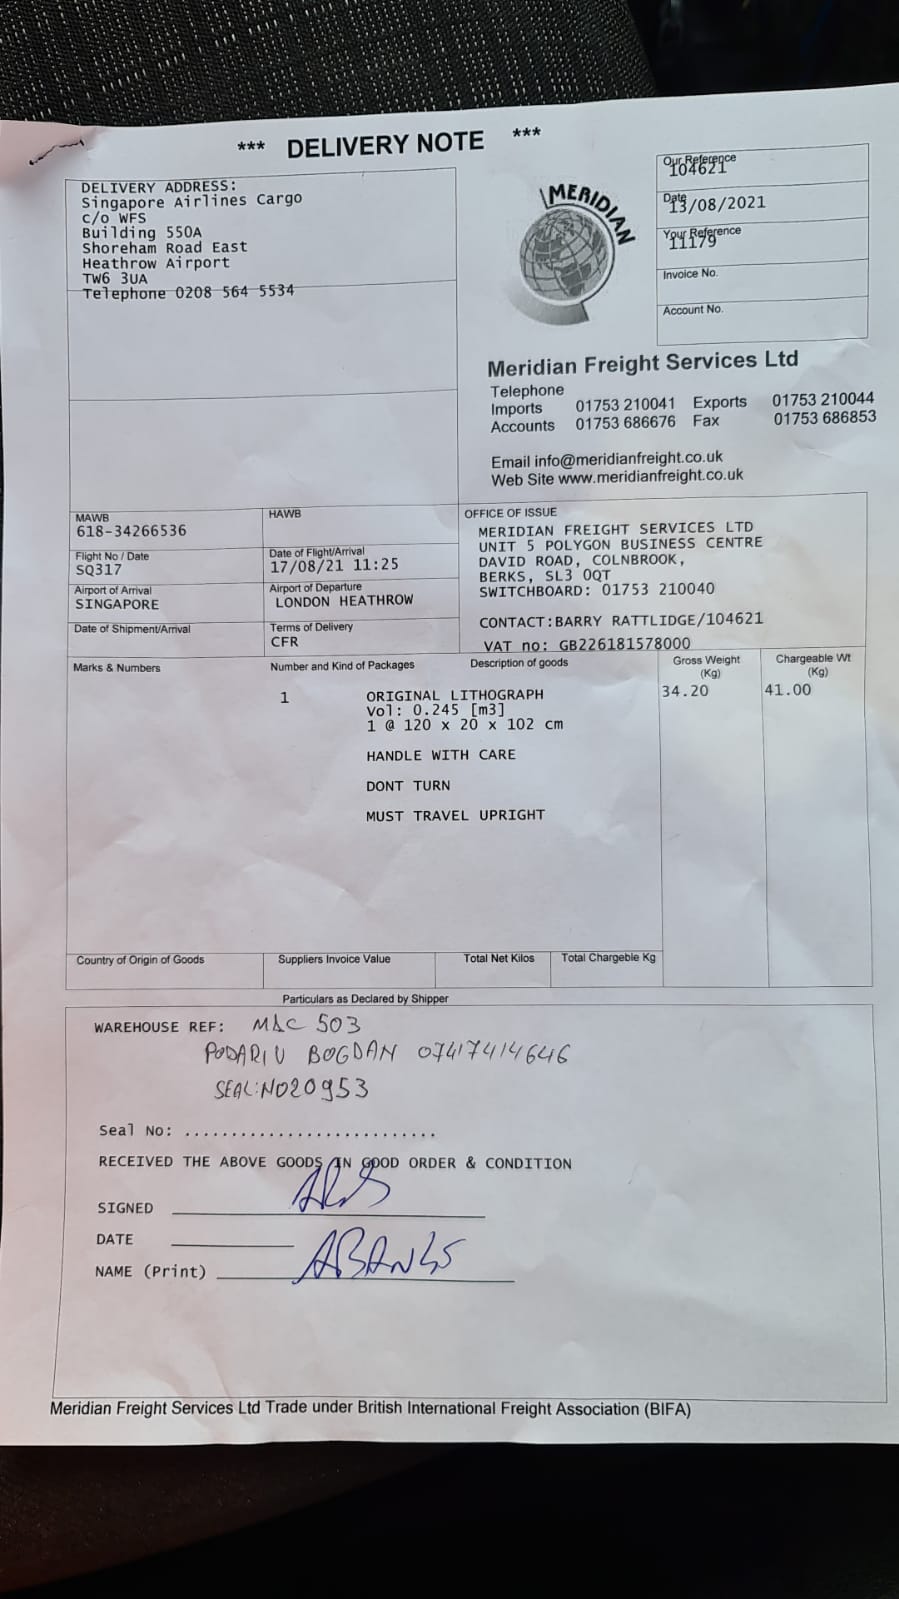 *** DELIVERY NOTE ***
DELIVERY ADDRESS:
Singapore Airlines Cargo
c/o WFS
Building 550A
Shoreham Road East
Heathrow Airport
TW6 3UA
Telephone 0208 564 5534
MERIDIAN
Our Reference
104621
Date
13/08/2021
Your Reference
11179
Invoice No.
Account No.
Meridian Freight Services Ltd
Telephone
Imports 01753 210041 Exports 01753 210044
Accounts 01753 686676 Fax 01753 686853
Email info@meridianfreight.co.uk
Web Site www.meridianfreight.co.uk
MAWB
618-34266536
HAWB
Flight No / Date
SQ317
Date of Flight/Arrival
17/08/21 11:25
Airport of Arrival
SINGAPORE
Airport of Departure
LONDON HEATHROW
Date of Shipment/Arrival
Terms of Delivery
CFR
OFFICE OF ISSUE
MERIDIAN FREIGHT SERVICES LTD
UNIT 5 POLYGON BUSINESS CENTRE
DAVID ROAD, COLNBROOK,
BERKS, SL3 0QT
SWITCHBOARD: 01753 210040
CONTACT:BARRY RATTLIDGE/104621
VAT no: GB226181578000
Marks & Numbers
Number and Kind of Packages
Description of goods
Gross Weight
(Kg)
Chargeable Wt
(Kg)
1 ORIGINAL LITHOGRAPH 34.20 41.00
Vol: 0.245 [m3]
1 @ 120 x 20 x 102 cm
HANDLE WITH CARE
DONT TURN
MUST TRAVEL UPRIGHT
Country of Origin of Goods
Suppliers Invoice Value
Total Net Kilos
Total Chargeble Kg
Particulars as Declared by Shipper
WAREHOUSE REF: MAC 503
PODARIU BOGDAN 07417414646
SEAL:NO20953
Seal No: ...........................
RECEIVED THE ABOVE GOODS IN GOOD ORDER & CONDITION
SIGNED
DATE
NAME (Print) ABANKS
Meridian Freight Services Ltd Trade under British International Freight Association (BIFA)